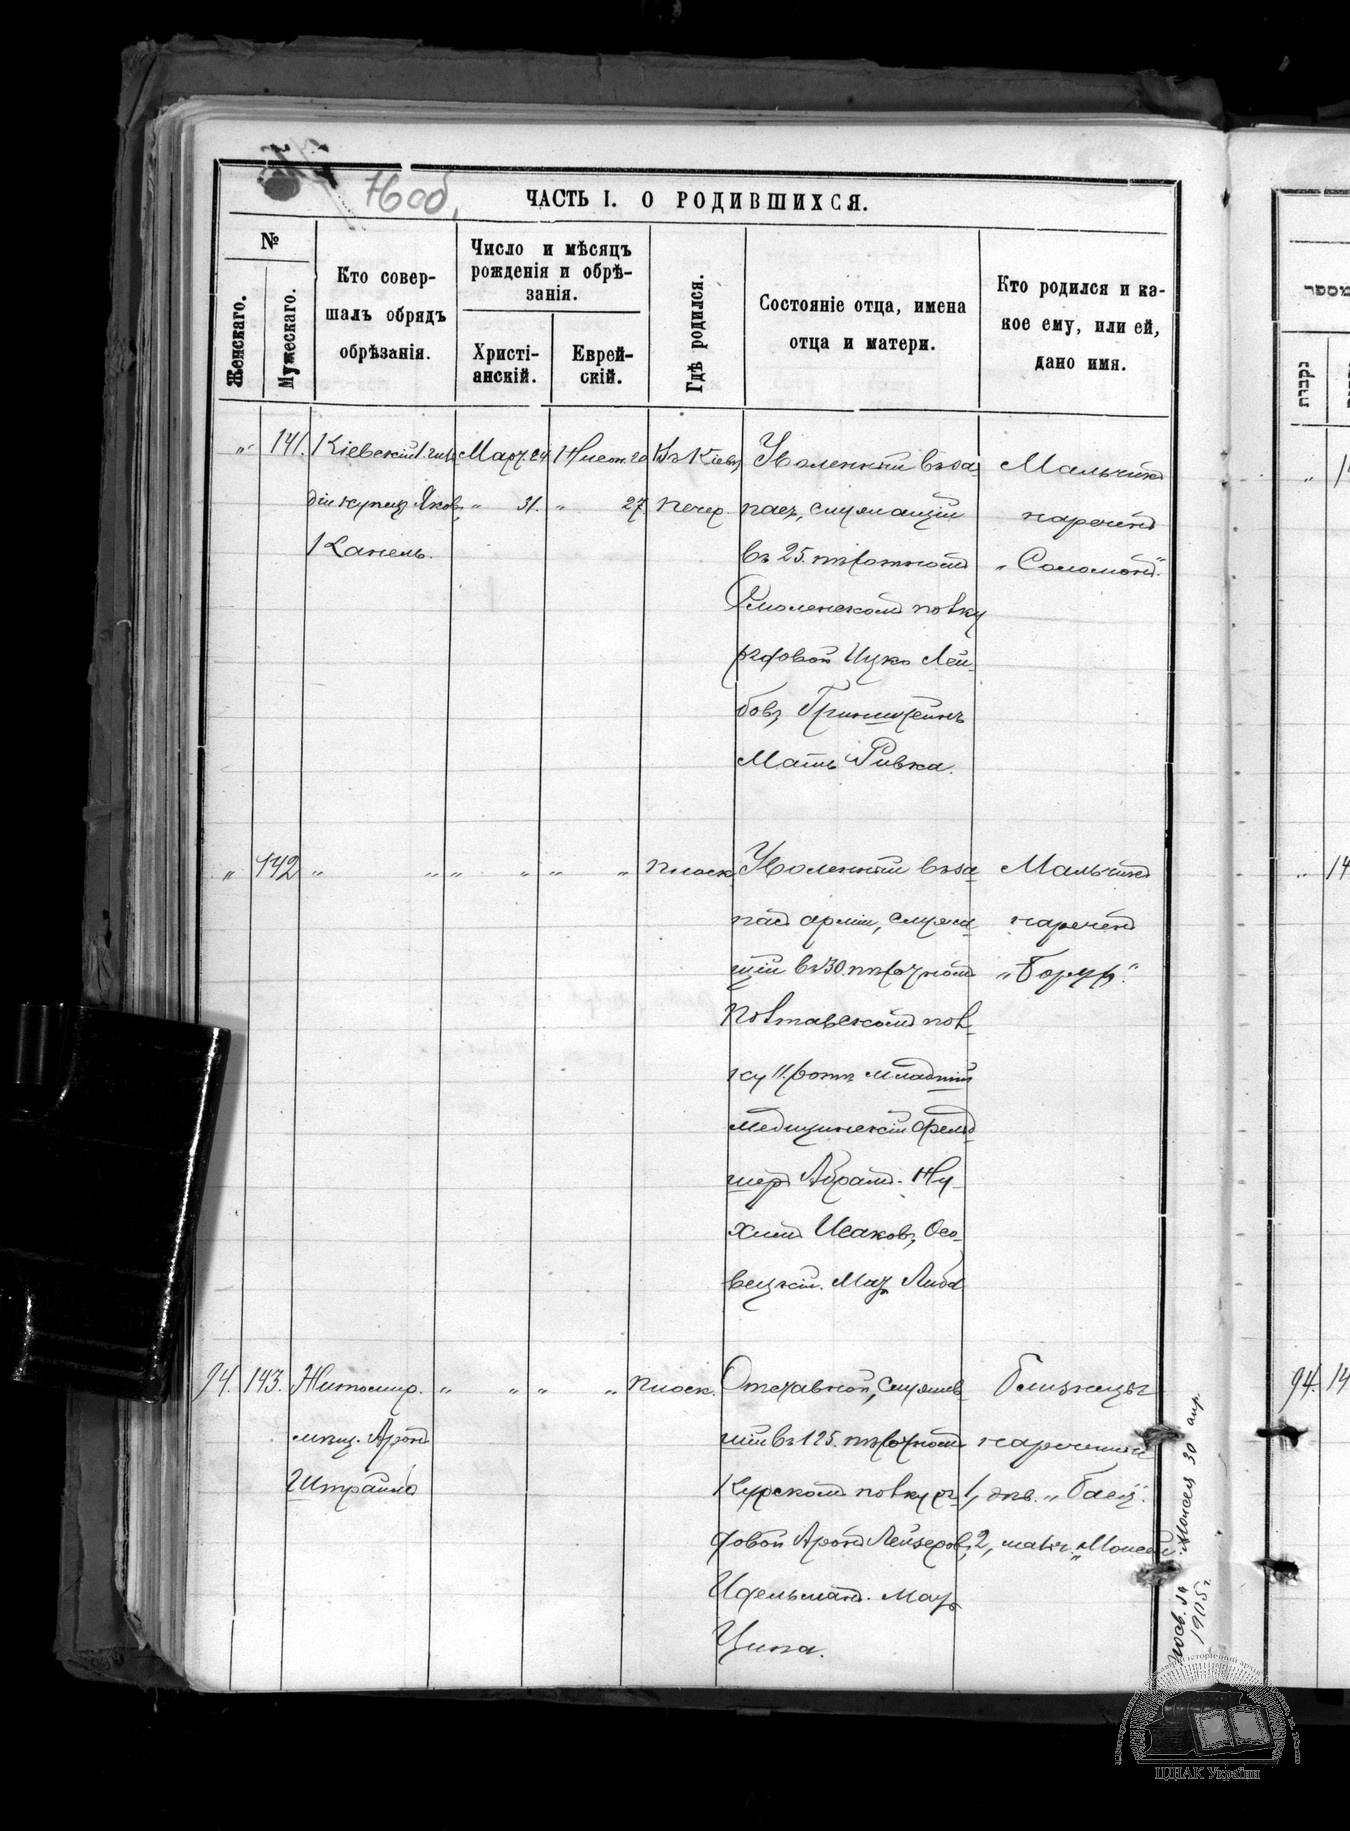 76 об.
ЧАСТЬ I. О РОДИВШИХСЯ.
№
Женскаго.
Мужескаго.
Кто совер-
шалъ обрядъ
обрѣзанія.
Число и мѣсяцъ
рожденія и обрѣ-
занія.
Христі-
анскій.
Еврей-
скій.
Гдѣ родился.
Состояніе отца, имена
отца и матери.
Кто родился и ка-
кое ему, или ей,
дано имя.
מספר
נקבות
" 141. Кіевскій 1. гиль-
діи купецъ Яков.
Канель.
Март. 24
" 31.
Нисон. 20
" 27.
Въ Кіевѣ
Печер.
Уволенный въ за-
пасъ, служащій
въ 25. пѣхотномъ
Смоленскомъ полку
рядовой Ицко Лей-
бовъ Гринштейнъ
Мать Ривка.
Мальчикъ
нареченъ
"Соломонъ".
" 142 " " " " " "
Плоск.
Уволенный въ за-
пасъ арміи, служа-
щій въ 30. пѣхотномъ
Полтавскомъ пол-
ку 11. ротѣ младшій
медицинскій фельд-
шеръ Абрамъ-Ну-
химъ Исаковъ Осо-
вецкій. Мать Люба
Мальчикъ
нареченъ
"Борухъ".
94. 143. Житомир.
мѣщ. Аронъ
Штраймъ
" " " "
Плоск.
Отставной, служив-
шій въ 125. пѣхотномъ
Курскомъ полку ря-
довой Аронъ Лейзеров.
Идельманъ. Мать
Ципа.
Близнецы
нареченны
1, дѣв. "Бася".
2, мальч. "Моисей"
94. 14
Моисея 30 апр.
1905 г.
ЦДІАК України